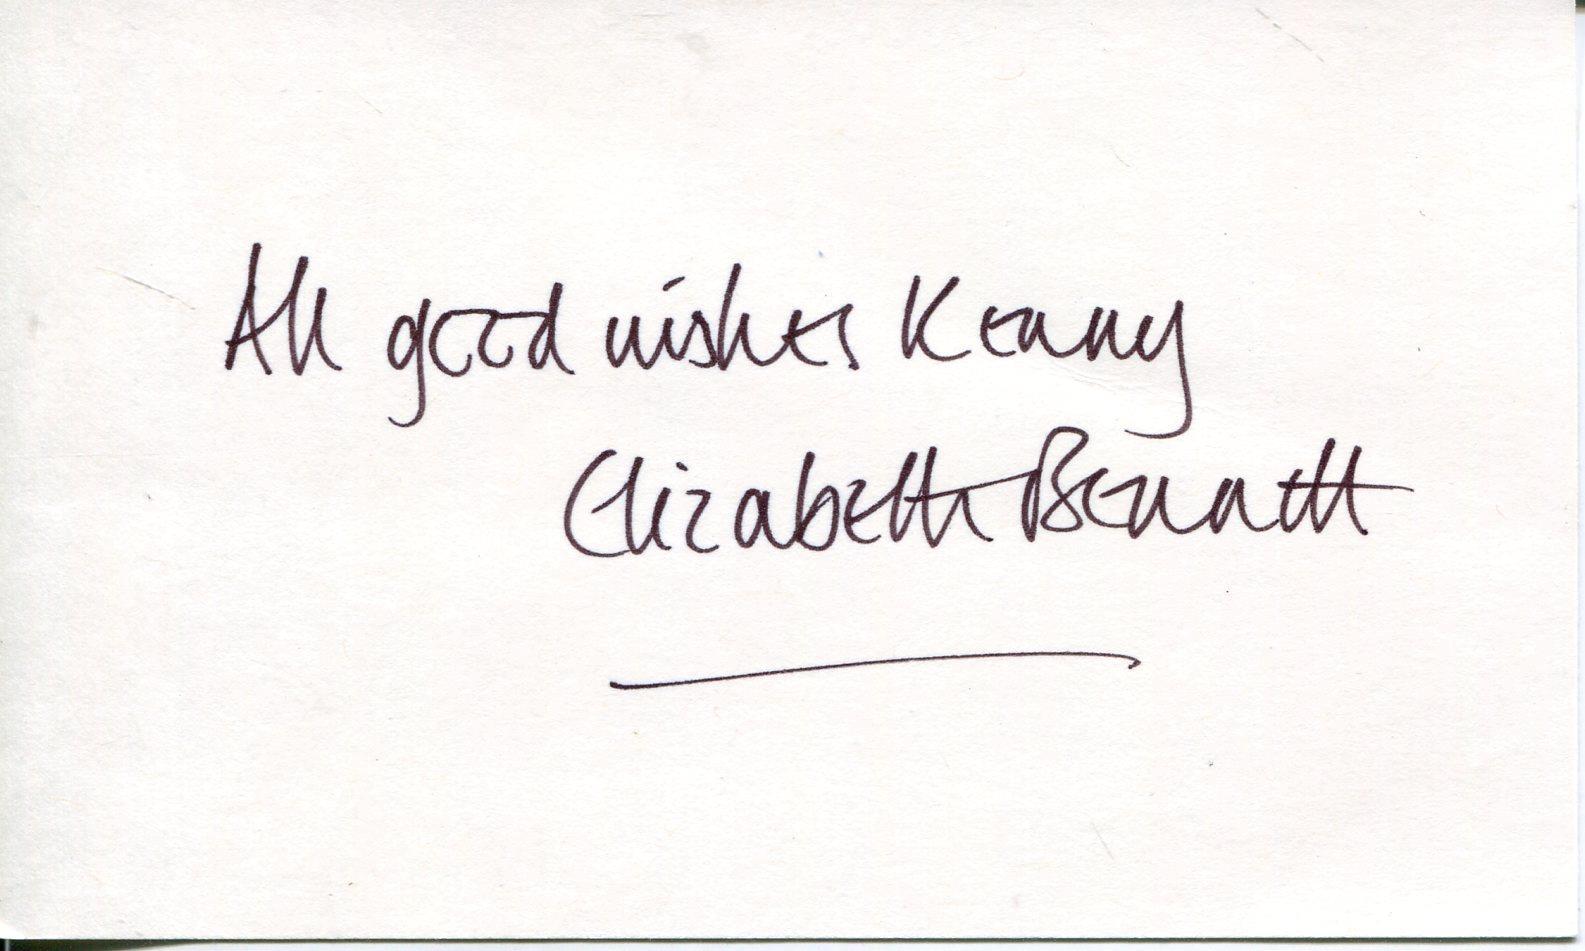 All good wishes Kenny
Elizabeth Bennett